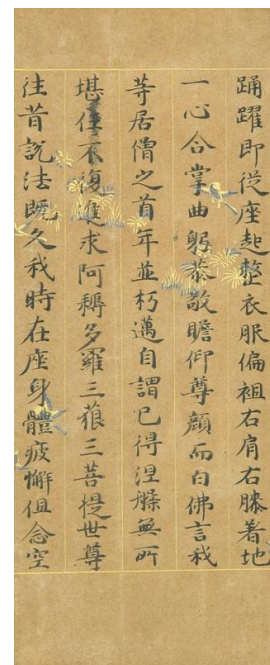 踊躍即從座起整衣服偏袒右肩右膝著地
一心合掌曲躬恭敬瞻仰尊顔而白佛言我
等居僧之首年並朽邁自謂已得涅槃無所
堪任不復進求阿耨多羅三藐三菩提世尊
往昔説法既久我時在座身體疲懈但念空